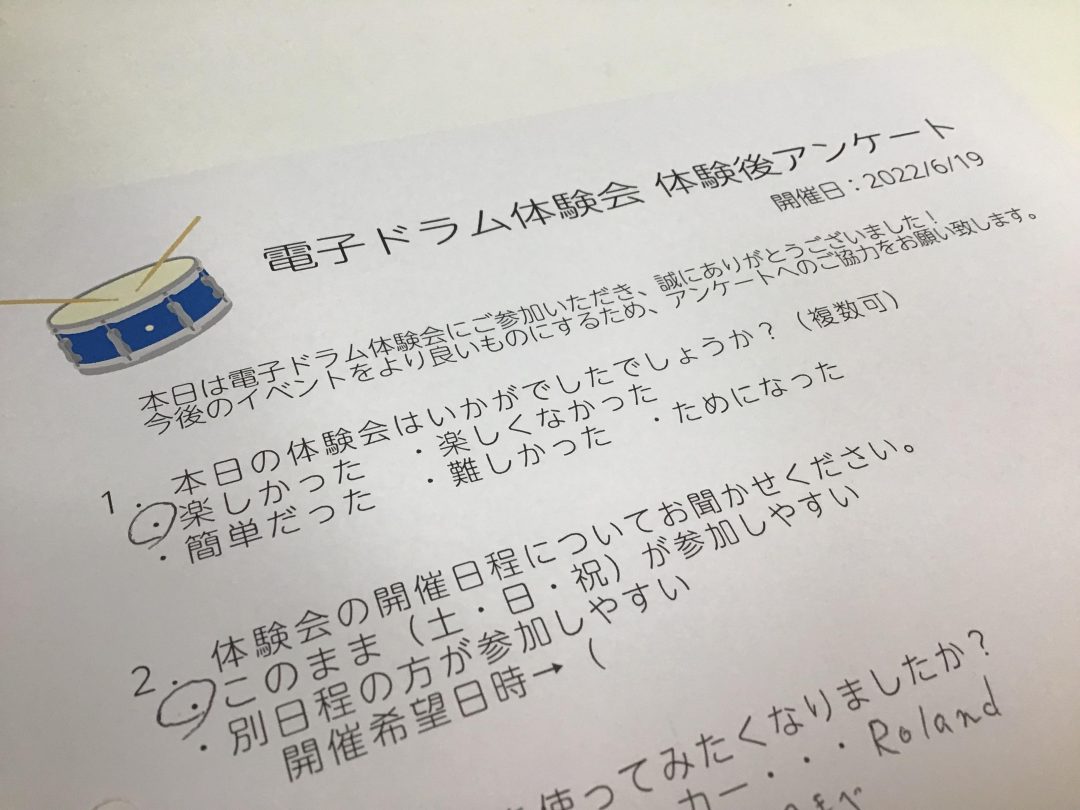 電子ドラム体験会 体験後アンケート
開催日：2022/6/19
本日は電子ドラム体験会にご参加いただき、誠にありがとうございました！
今後のイベントをより良いものにするため、アンケートへのご協力をお願い致します。
1． 本日の体験会はいかがでしたでしょうか？（複数可）
・楽しかった ・楽しくなかった ・ためになった
・簡単だった ・難しかった
2． 体験会の開催日程についてお聞かせください。
・このまま（土・日・祝）が参加しやすい
・別日程の方が参加しやすい
開催希望日時→（
使ってみたくなりましたか？
カー・・・Roland